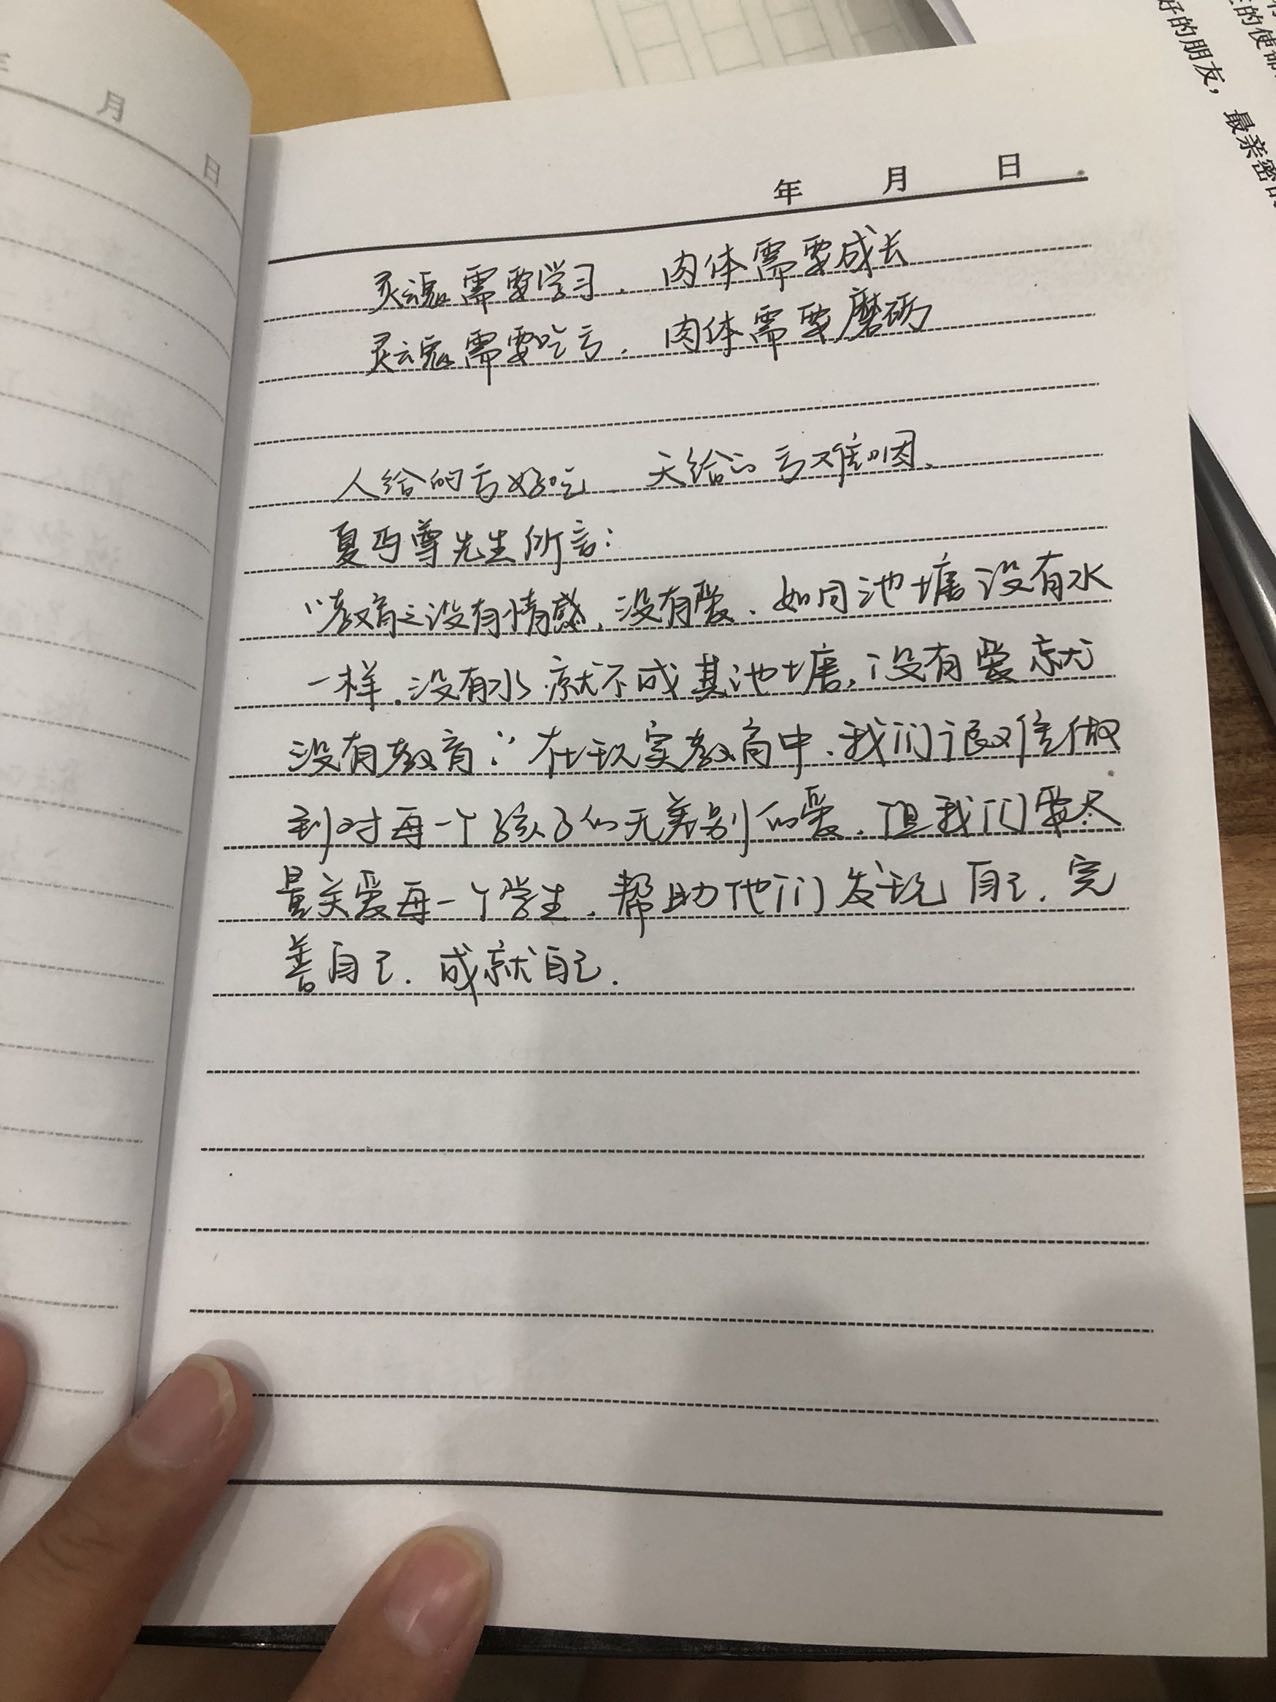 年 月 日
年 月 日
灵魂需要学习，肉体需要成长
灵魂需要吃亏，肉体需要磨砺
人给的亏好吃，天给的亏难咽.
夏丏尊先生所言：
“教育之没有情感，没有爱，如同池塘没有水
一样，没有水，就不成其池塘，没有爱就
没有教育.”在现实教育中，我们很难做
到对每一个孩子的无差别的爱，但我们要尽
量关爱每一个学生，帮助他们发现自己，完
善自己，成就自己.
好的朋友，最亲密的
的使命